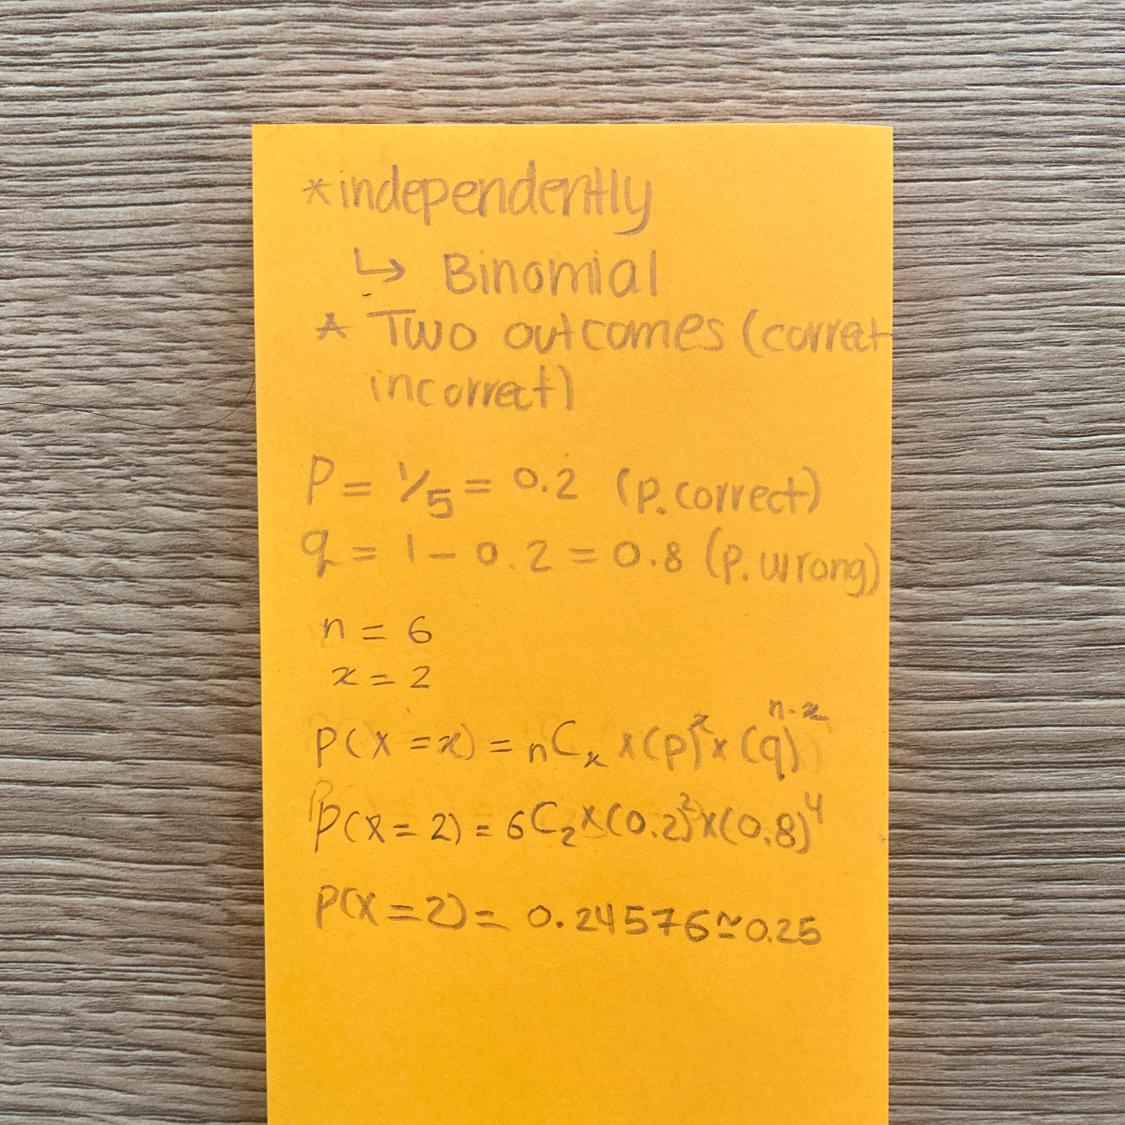 *independently
↳ Binomial
* Two outcomes (correct
incorrect)
P = 1/5 = 0.2 (p.correct)
q = 1 - 0.2 = 0.8 (p.wrong)
n = 6
x = 2
P(X = x) = nCₓ × (p)ˣ × (q)ⁿ⁻ˣ
P(X = 2) = 6C₂ × (0.2)² × (0.8)⁴
P(X = 2) = 0.24576 ≃ 0.25